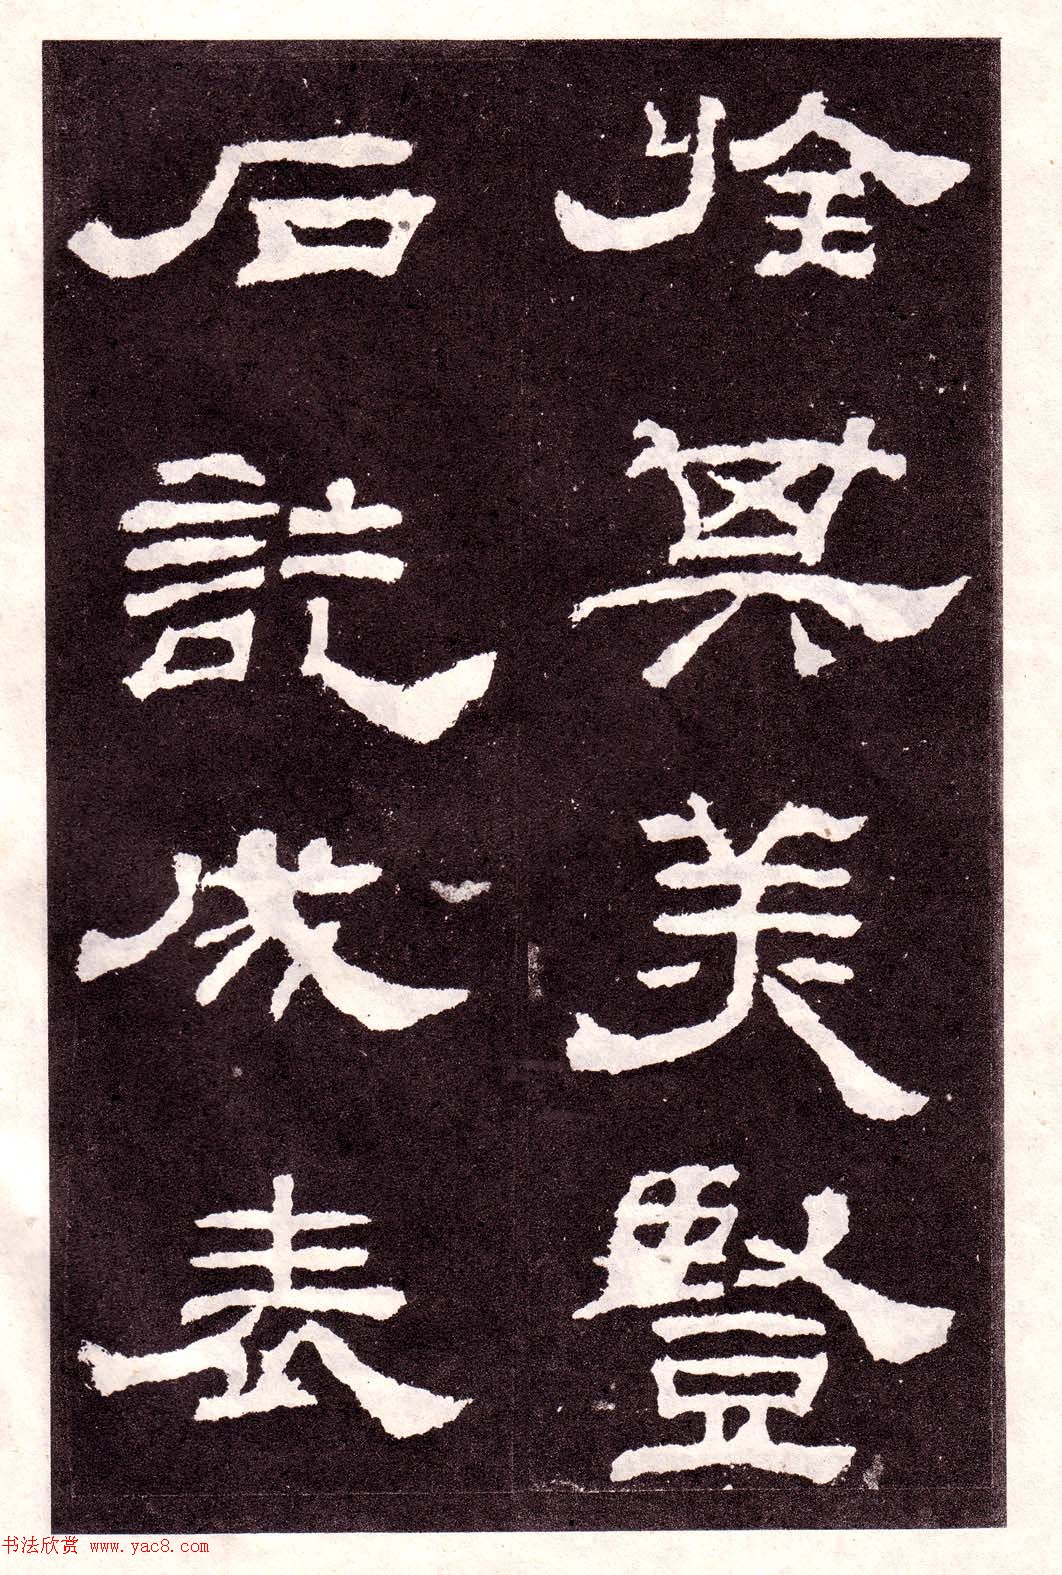 其美豎
石訖表
书法欣赏 www.yac8.com